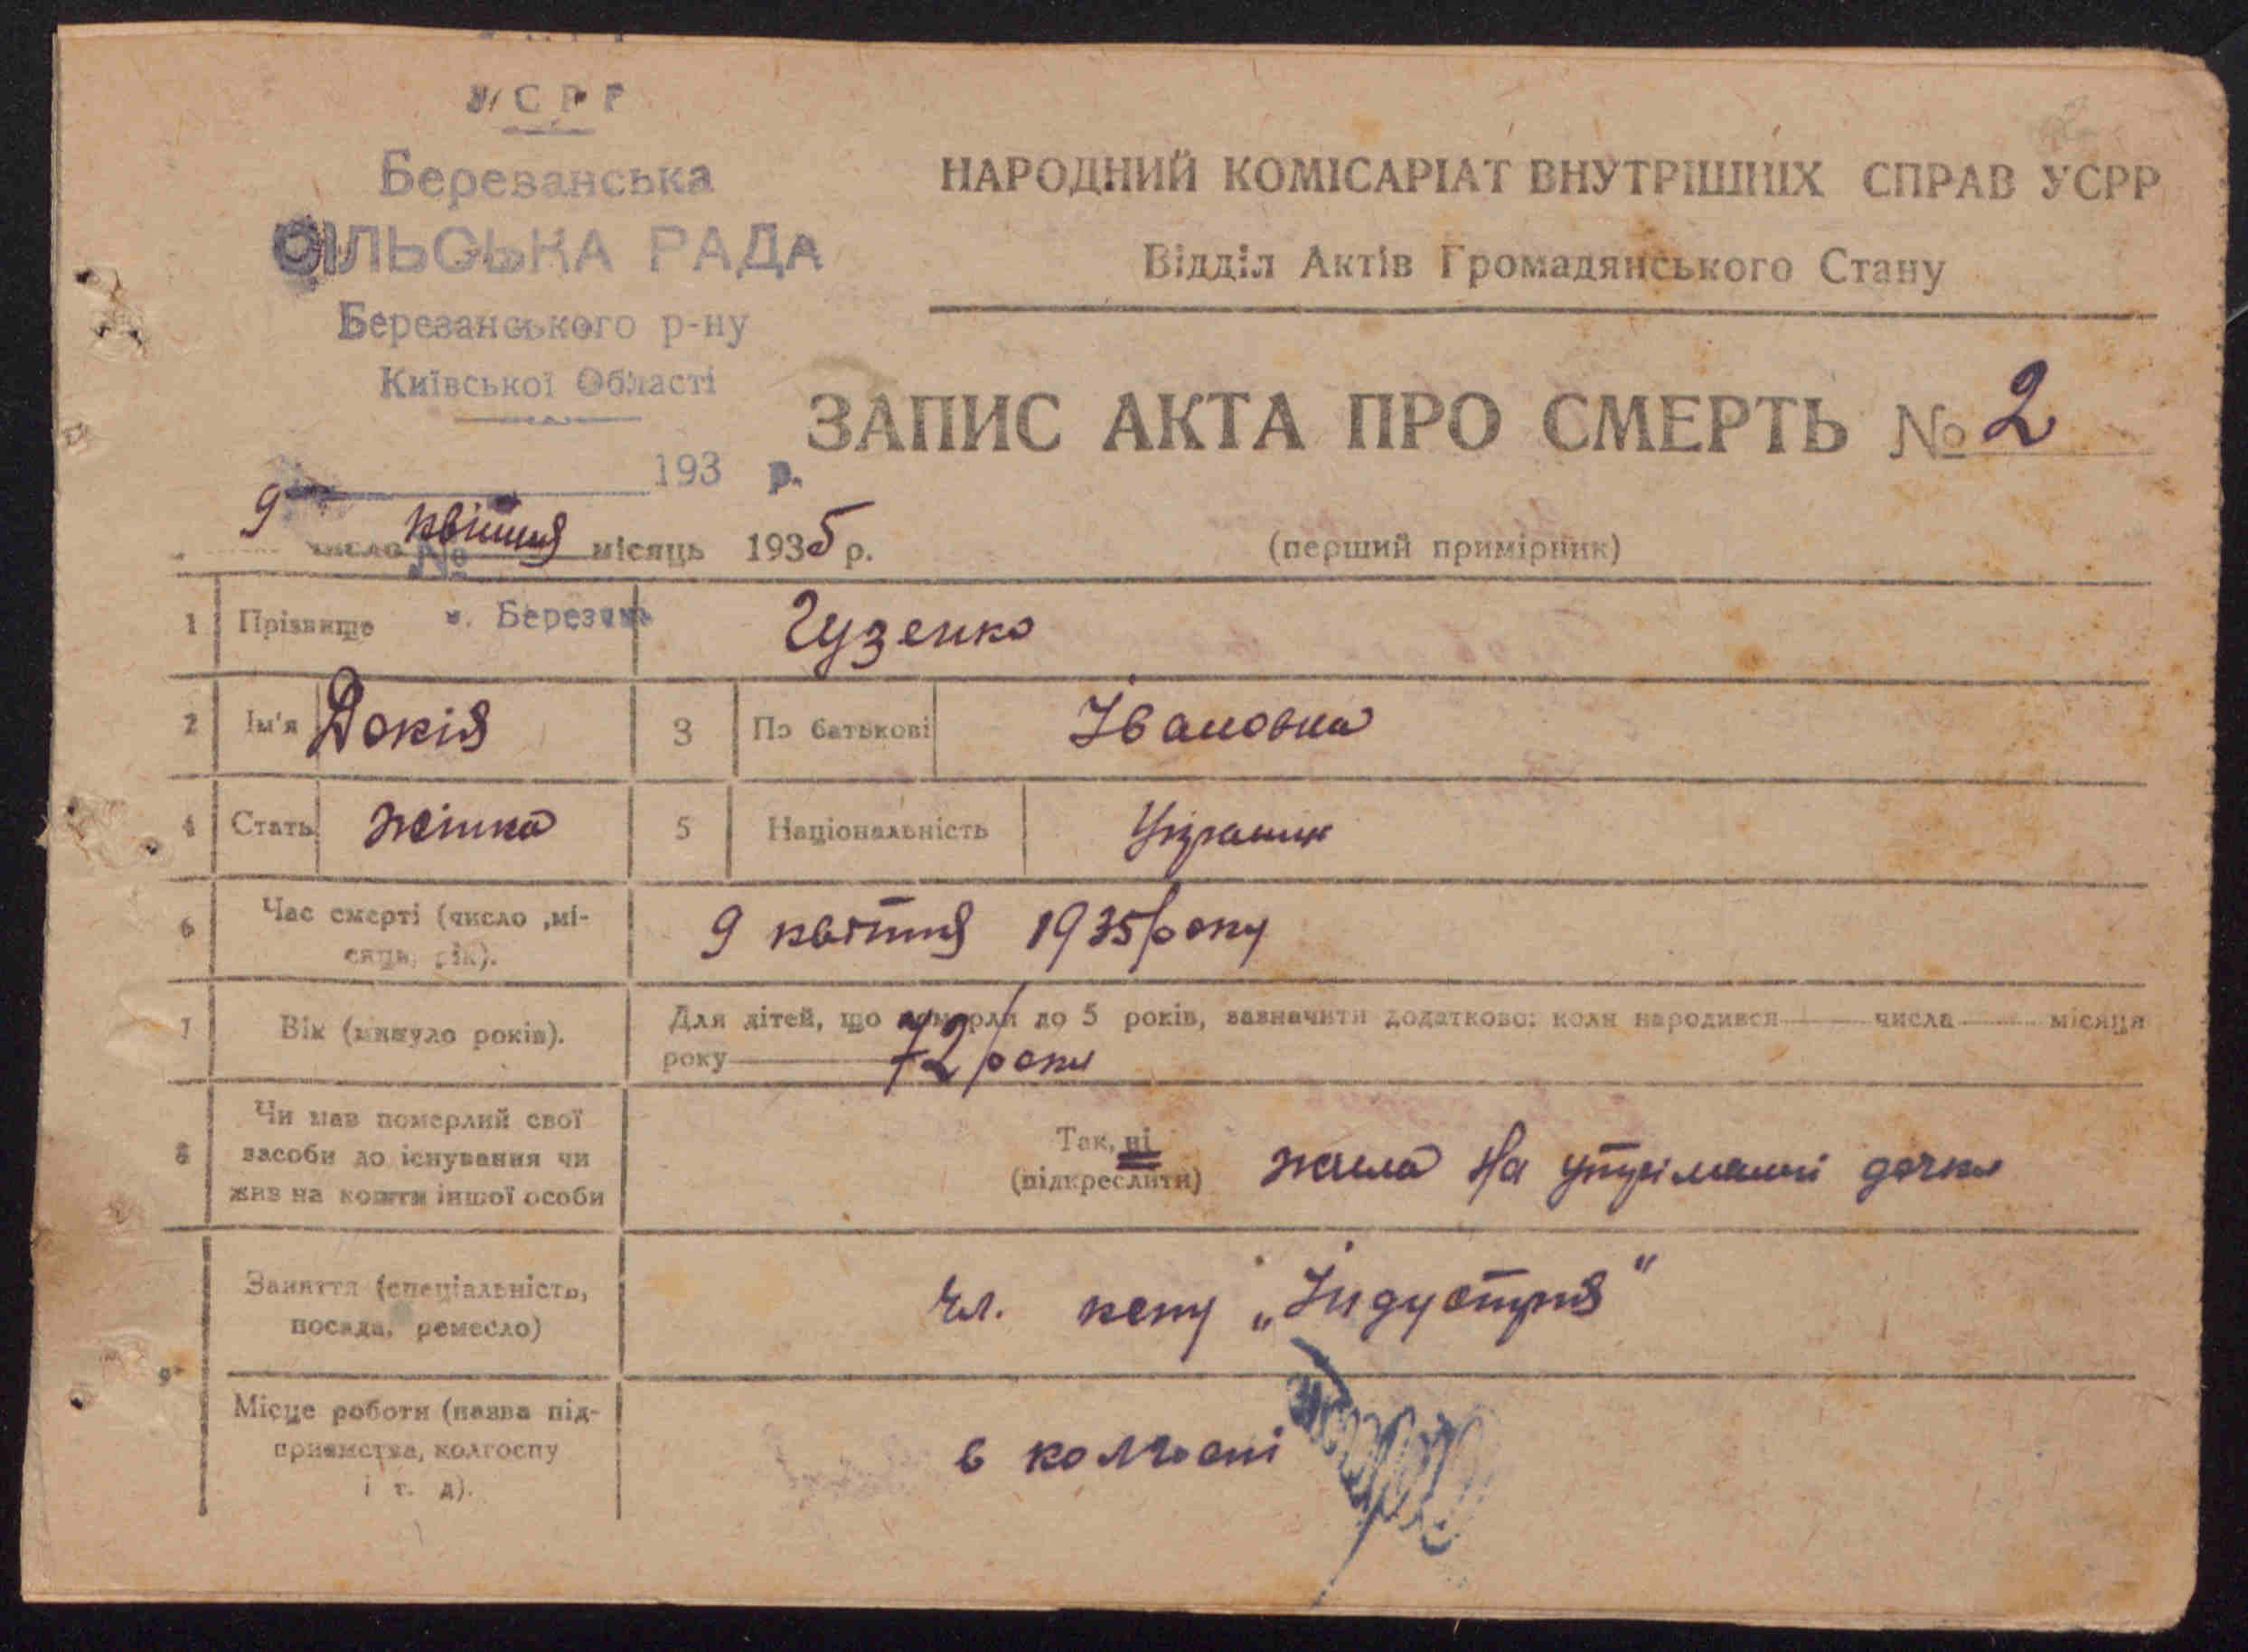 УСРР
Березанська
СІЛЬСЬКА РАДА
Березанського р-ну
Київської Області
193 р.
№
м. Березань
НАРОДНИЙ КОМІСАРІАТ ВНУТРІШНІХ СПРАВ УСРР
Відділ Актів Громадянського Стану
ЗАПИС АКТА ПРО СМЕРТЬ № 2
9 число квітня місяць 1935 р.
(перший примірник)
1 Прізвище Гузенко
2 Ім'я Докія 3 По батькові Івановна
4 Стать жінка 5 Національність Українк
6 Час смерті (число ,мі-
сяць, рік).
9 квітня 1935 року
7 Вік (минуло років).
Для дітей, що померли до 5 років, зазначити додатково: коли народився числа місяця
року 72 роки
8 Чи мав померлий свої
засоби до існування чи
жив на кошти іншої особи
Так, ні
(підкреслити)
жила на утриманні дочки
9
Заняття (спеціальність,
посада, ремесло)
чл. кспу „Індустрия"
Місце роботи (назва під-
приємства, колгоспу
і т. д).
в колгоспі